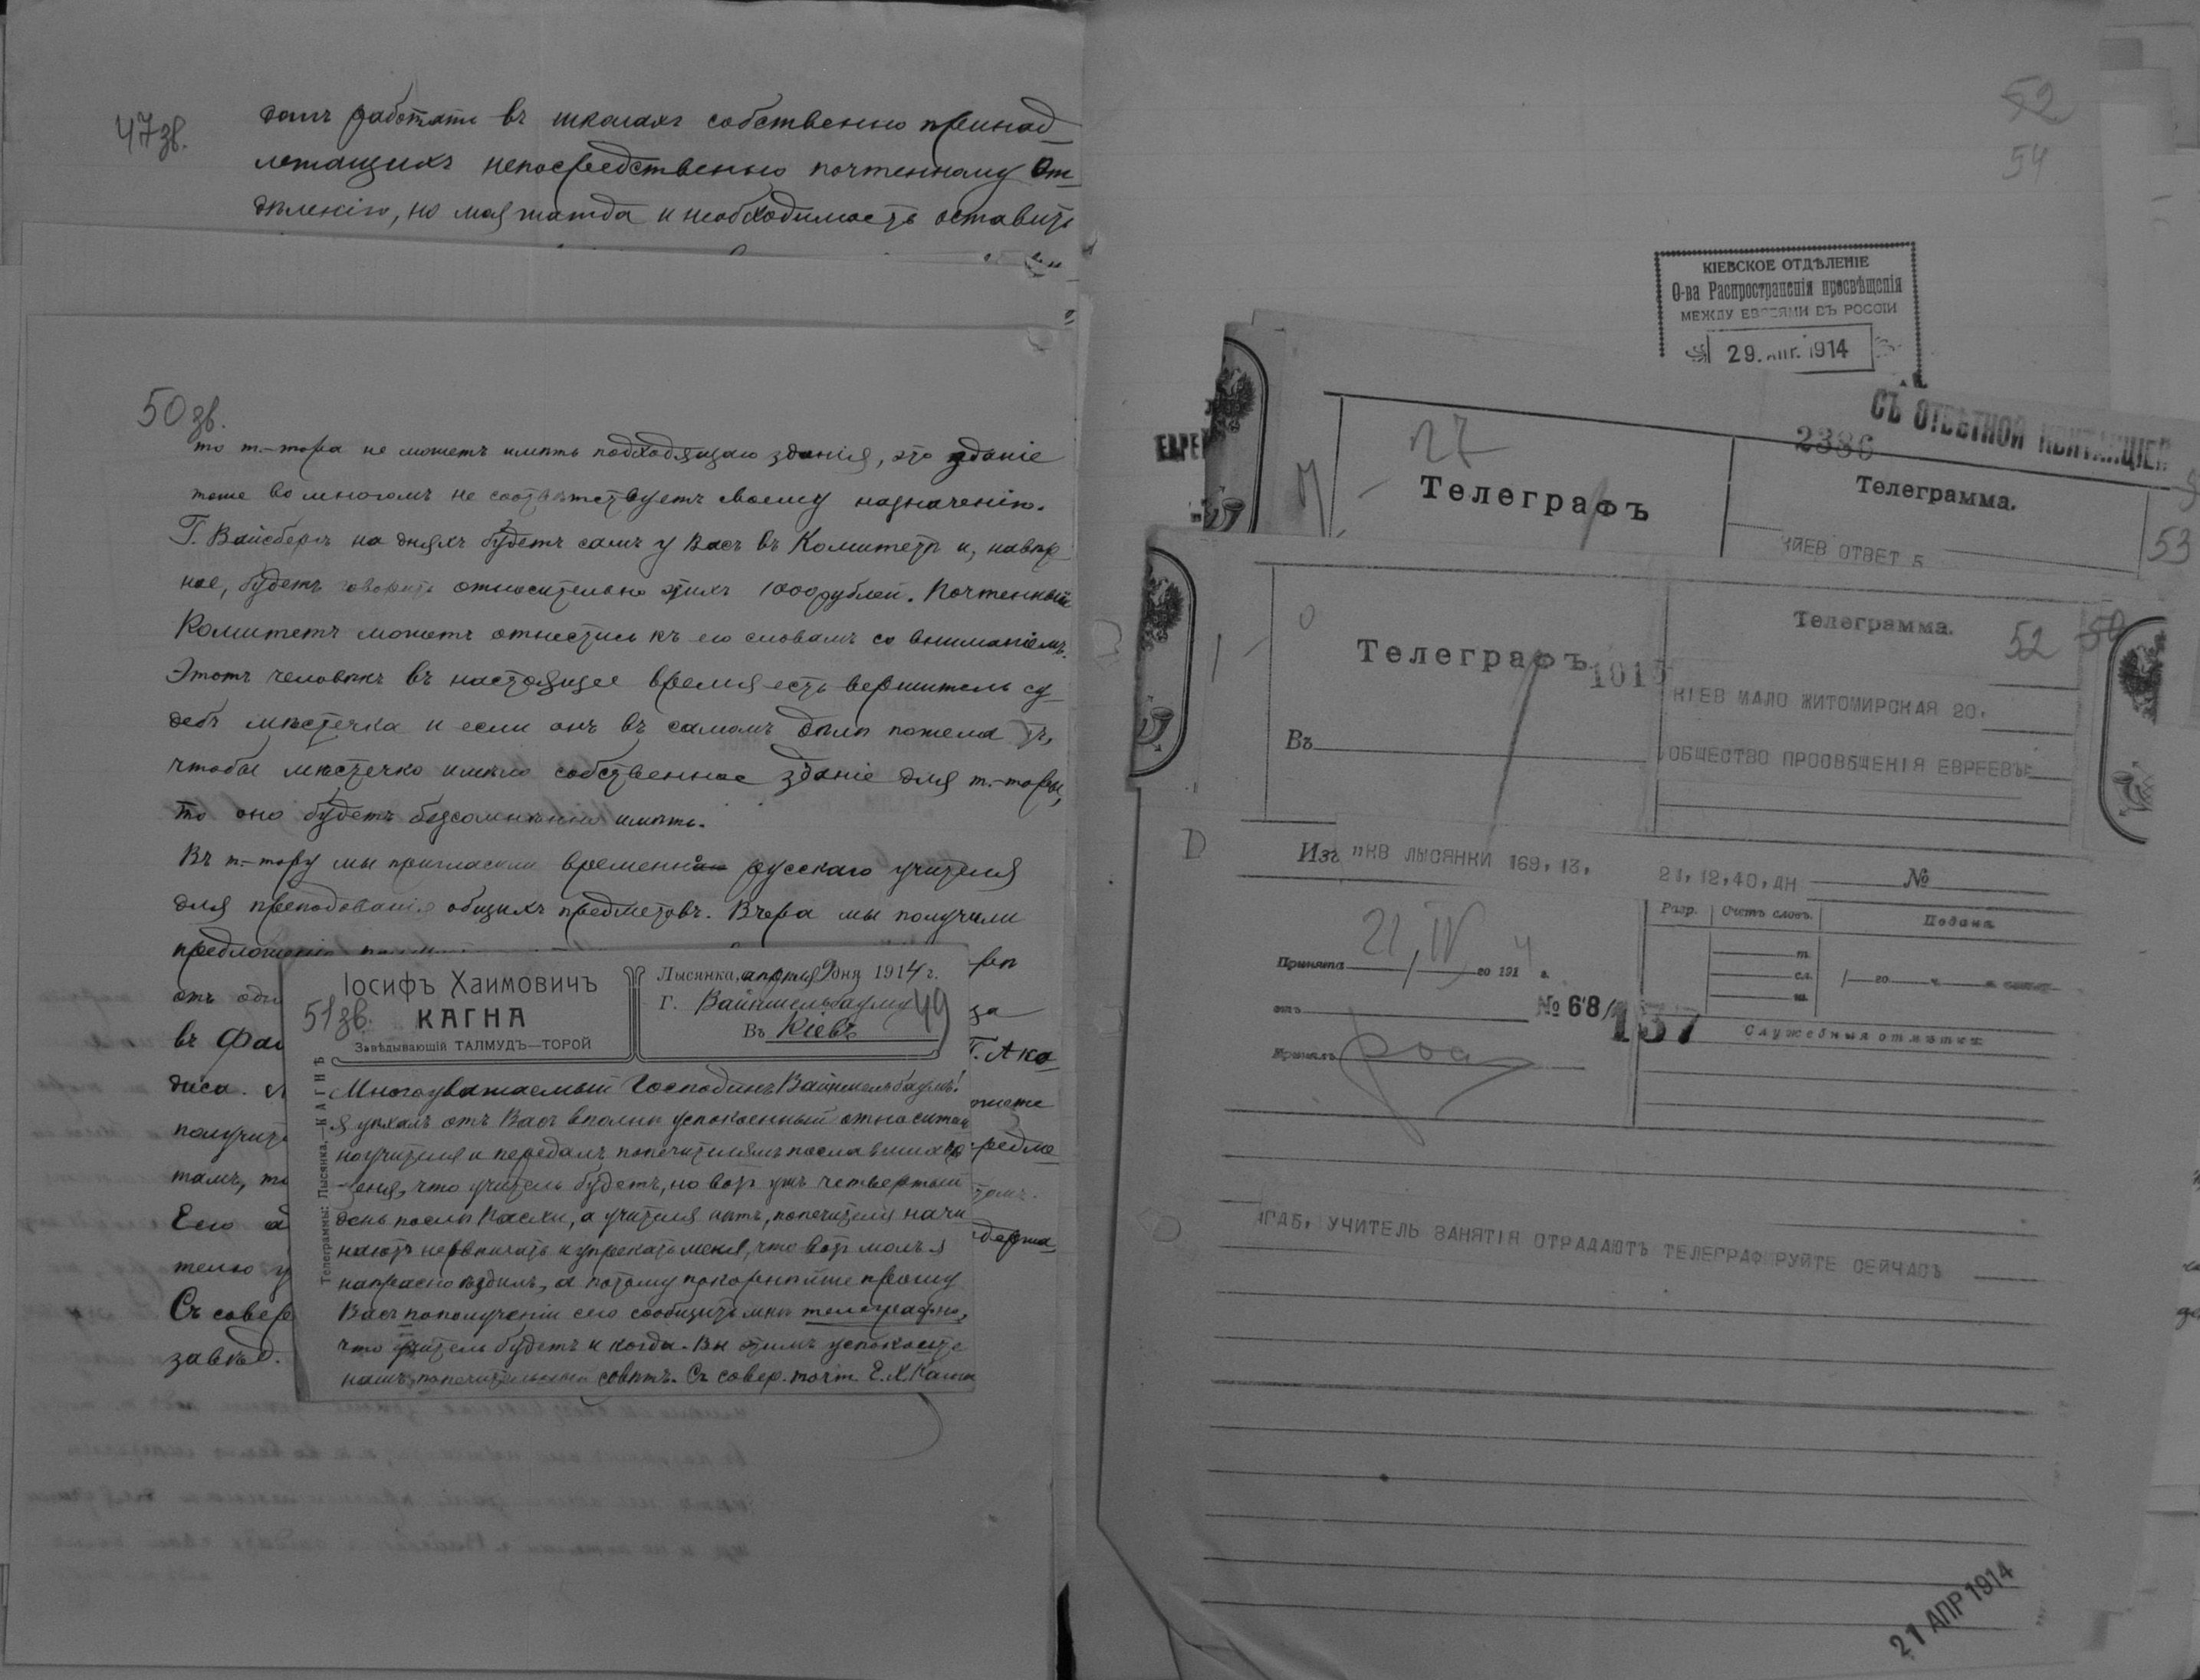 47 зв.
дамъ работать въ школахъ собственно принад
лежащихъ непосредственно почтенному От
дѣленію, но моя жажда и необходимость оставить
50 зв.
то т.-тора не можетъ имѣть подходящаго зданія, это зданіе
тоже во многомъ не соотвѣтствуетъ своему назначенію.
Г. Вайсбергъ на дняхъ будетъ самъ у Васъ въ Комитетѣ и, навѣр
ное, будетъ говорить относительно этихъ 1000 рублей. Почтенный
Комитетъ можетъ отнестись къ его словамъ со вниманіемъ.
Этотъ человѣкъ въ настоящее время есть вершитель су
дебъ мѣстечка и если онъ въ самомъ дѣлѣ пожела тъ,
чтобы мѣстечко имѣло собственное зданіе для т.-торы,
то оно будетъ безсомнѣнно имѣть.
Въ т.-тору мы пригласили временно русскаго учителя
для преподованія общихъ предметовъ. Вчера мы получили
предложеніе
отъ
въ
диса.
получить
тамъ,
Его
телю
Съ совер
завѣд.
за
Г. Ако
редме
держа
Іосифъ Хаимовичъ
КАГНА
Завѣдывающій ТАЛМУДЪ—ТОРОЙ
51 зв.
Лысянка, апрѣля 9 дня 1914 г.
Г. Вайншельбауму
Въ Кіевъ
49
Телеграммы: Лысянка.—КАГНѢ
Многоуважаемый Господинъ Вайншельбаумъ!
Я уѣхалъ отъ Васъ вполнѣ успокоенный относител
но учителя и передалъ попечителямъ пославшихъ
меня, что учитель будетъ, но вотъ ужъ четвертый
день послѣ Пасхи, а учителя нѣтъ, попечители начи
наютъ нервничать и упрекать меня, что вотъ молъ я
напрасно ѣздилъ, а потому покорнѣйше прошу
Васъ по полученіи сего сообщить мнѣ телеграфно,
что учитель будетъ и когда. Вы этимъ успокоите
нашъ попечительный совѣтъ. Съ совер. почт. Е. Х. Кагна
52
54
КІЕВСКОЕ ОТДѢЛЕНІЕ
О-ва Распространенія просвѣщенія
МЕЖДУ ЕВРЕЯМИ ВЪ РОССІИ
29. АПР. 1914
СЪ ОТВѢТНОЙ КВИТАНЦІЕЙ
ЕВРЕ
27
2386
Телеграфъ
Телеграмма.
КИЕВ ОТВЕТ 5
53
Телеграфъ
Телеграмма.
52 50
КІЕВ МАЛО ЖИТОМИРСКАЯ 20,
Въ
ОБЩЕСТВО ПРОСВѢЩЕНІЯ ЕВРЕЕВЪ
Изъ ПКВ ЛЫСЯНКИ 169, 13, 21, 12,40, ДН №
Разр. Счетъ словъ. Подана
Принята 21, IV го 1914 г.
№ 68/
137
Служебныя отмѣтки
Принялъ
УЧИТЕЛЬ ЗАНЯТІЯ ОТРАДАЮТЪ ТЕЛЕГРАФИРУЙТЕ СЕЙЧАСЪ
21 АПР 1914